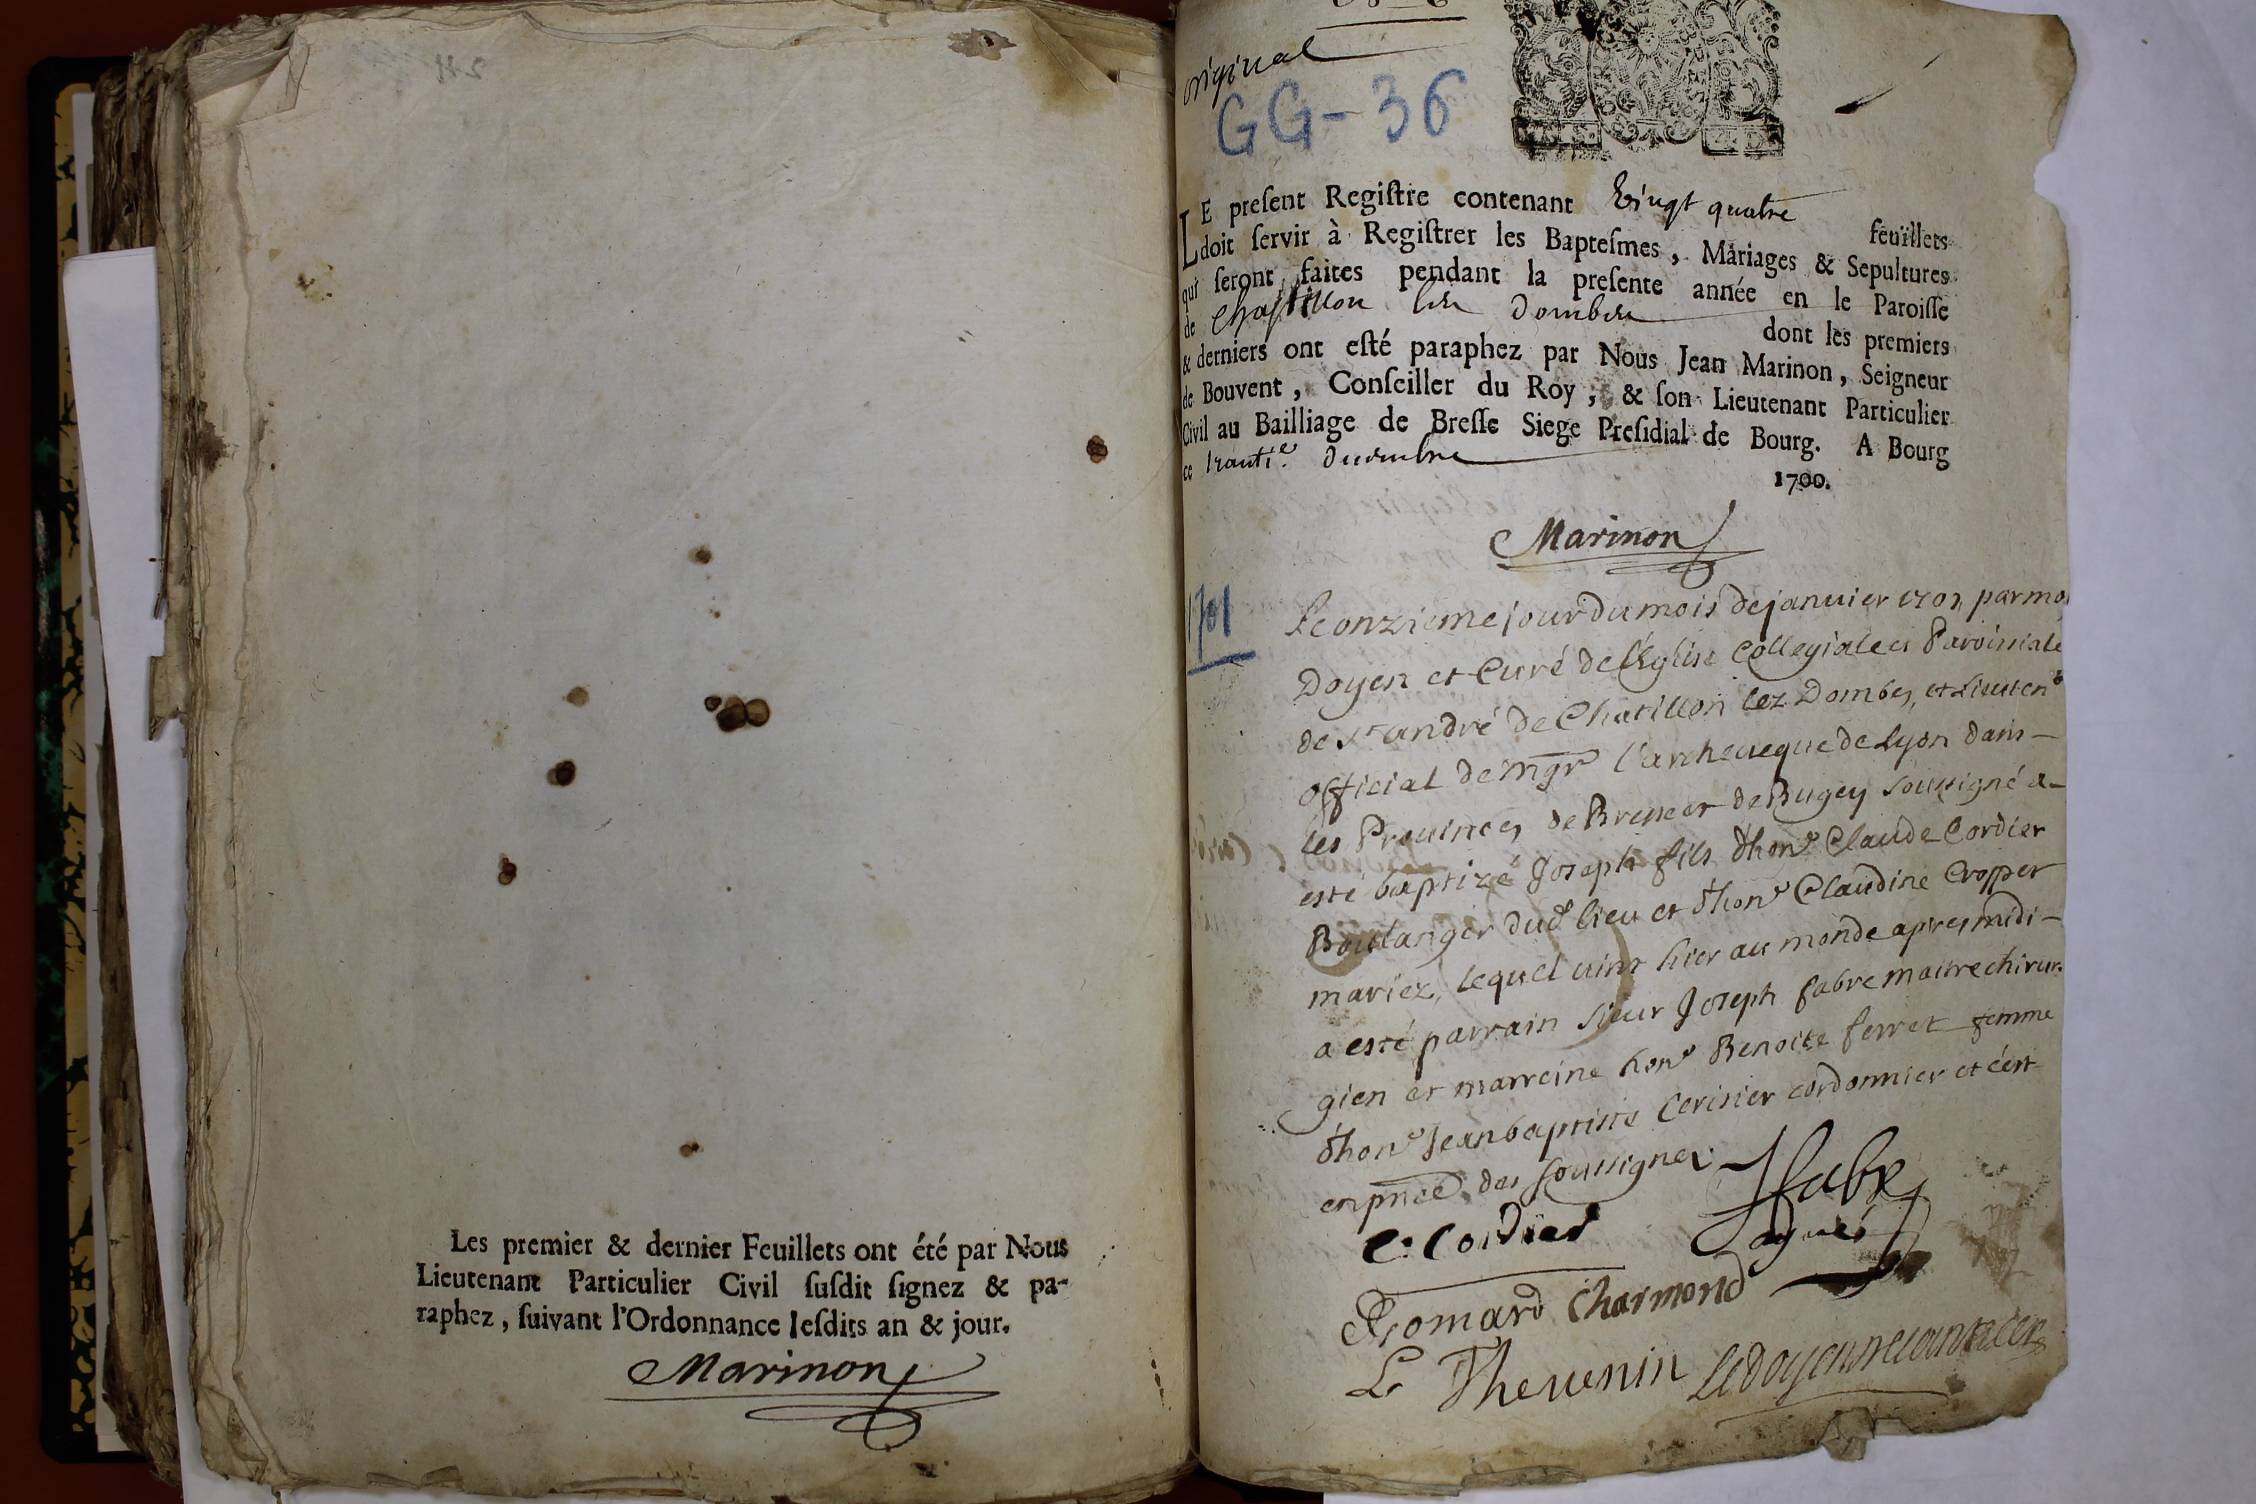 Les premier & dernier Feuillets ont été par Nous
Lieutenant Particulier Civil ſuſdit ſignez & pa-
raphez, ſuivant l'Ordonnance leſdits an & jour.
Marinon
original
GG-36
LE preſent Regiſtre contenant Vingt quatre feüillets
doit ſervir à Regiſtrer les Bapteſmes, Mariages & Sepultures
qui ſeront faites pendant la preſente année en le Paroiſſe
de Chaſtillon les Dombes dont les premiers
& derniers ont eſté paraphez par Nous Jean Marinon, Seigneur
de Bouvent, Conſeiller du Roy, & ſon Lieutenant Particulier
Civil au Bailliage de Breſſe Siege Preſidial de Bourg. A Bourg
ce trantie. decembre
1700.
Marinon
1701
Le onzieme jour du mois de janvier 1701, par moy
Doyen et Curé de l'Eglise Collegiale et Paroissiale
de St andré de Chatillon lez Dombes, et Lieutent
official de Mgr l'archeveque de Lyon dans
les Provinces de Bresse et de Bugey soussigné a
esté baptizé Joseph fils d'hone Claude Cordier
Boulanger dud lieu et d'hone Claudine Cropper
mariez, lequel vint hier au monde apres midi
a esté parrain sieur Joseph fabre maitre chirur
gien et marreine hone Benoite ferret femme
d'hone Jean baptiste Cerisier cordonnier et c'est
en pnce des soussignez
J fabre
C. Cordier
agnés
Gomard Charmond
L Thevenin Le doyen